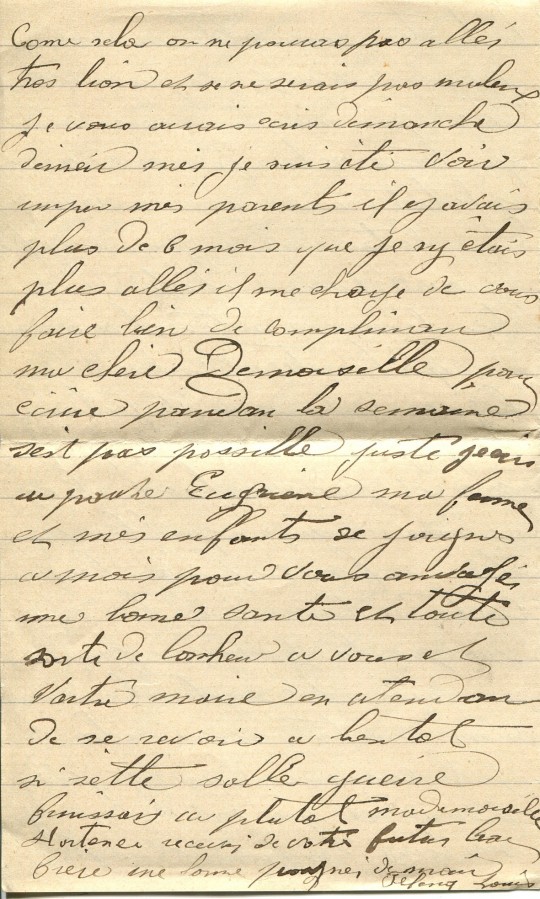 Come sela on ne pouras pas allés
tres lion et se ne serais pas muleux
Je vous aurais ecris dimanche
dernier mes je suis été voir
un peu mes parents il y avais
plus de 6 mois que je ny étais
plus allés il me charge de vous
faire bien de compliman
ma chere Demoiselle pour
ecrire pandan la semaine
sest pas possille juste jecris
au pauvre Eugiene ma fame
et mes enfants se joigns
a mois pour vous anvoyés
une bonne sante et toute
sorte de bonheur a vous et
Votre maire en atendan
de se revoir a bientot
si sette salle guerre
finissais au plutot mademoiselle
Hortence recevez de votre futur beau
frere une bonne poignei de main
Louis